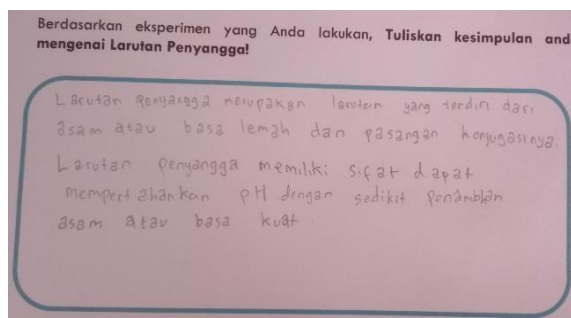 Berdasarkan eksperimen yang Anda lakukan, Tuliskan kesimpulan and
mengenai Larutan Penyangga!
Larutan penyangga merupakan larutan yang terdiri dari
asam atau basa lemah dan pasangan konjugasinya.
Larutan penyangga memiliki sifat dapat
mempertahankan pH dengan sedikit penambhan
asam atau basa kuat.